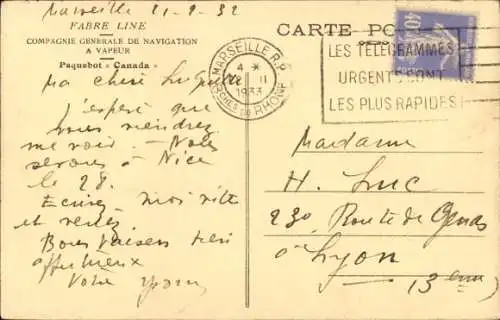 Marseille 21-2-32
FABRE LINE
COMPAGNIE GENERALE DE NAVIGATION
A VAPEUR
Paquebot « Canada »
Ma chère
J'espère que
vous viendrez
me voir - Nous
serons à Nice
le 28.
Ecrivez moi vite
et venez.
Bons baisers bien
affectueux
Votre
CARTE PO
MARSEILLE R.P.
4 *
II
1933
BCHES DU RHONE
40
LES TÉLÉGRAMMES
URGENTS SONT
LES PLUS RAPIDES
Madame
H. Luc
230 Route de Genas
à Lyon
(3 eme)